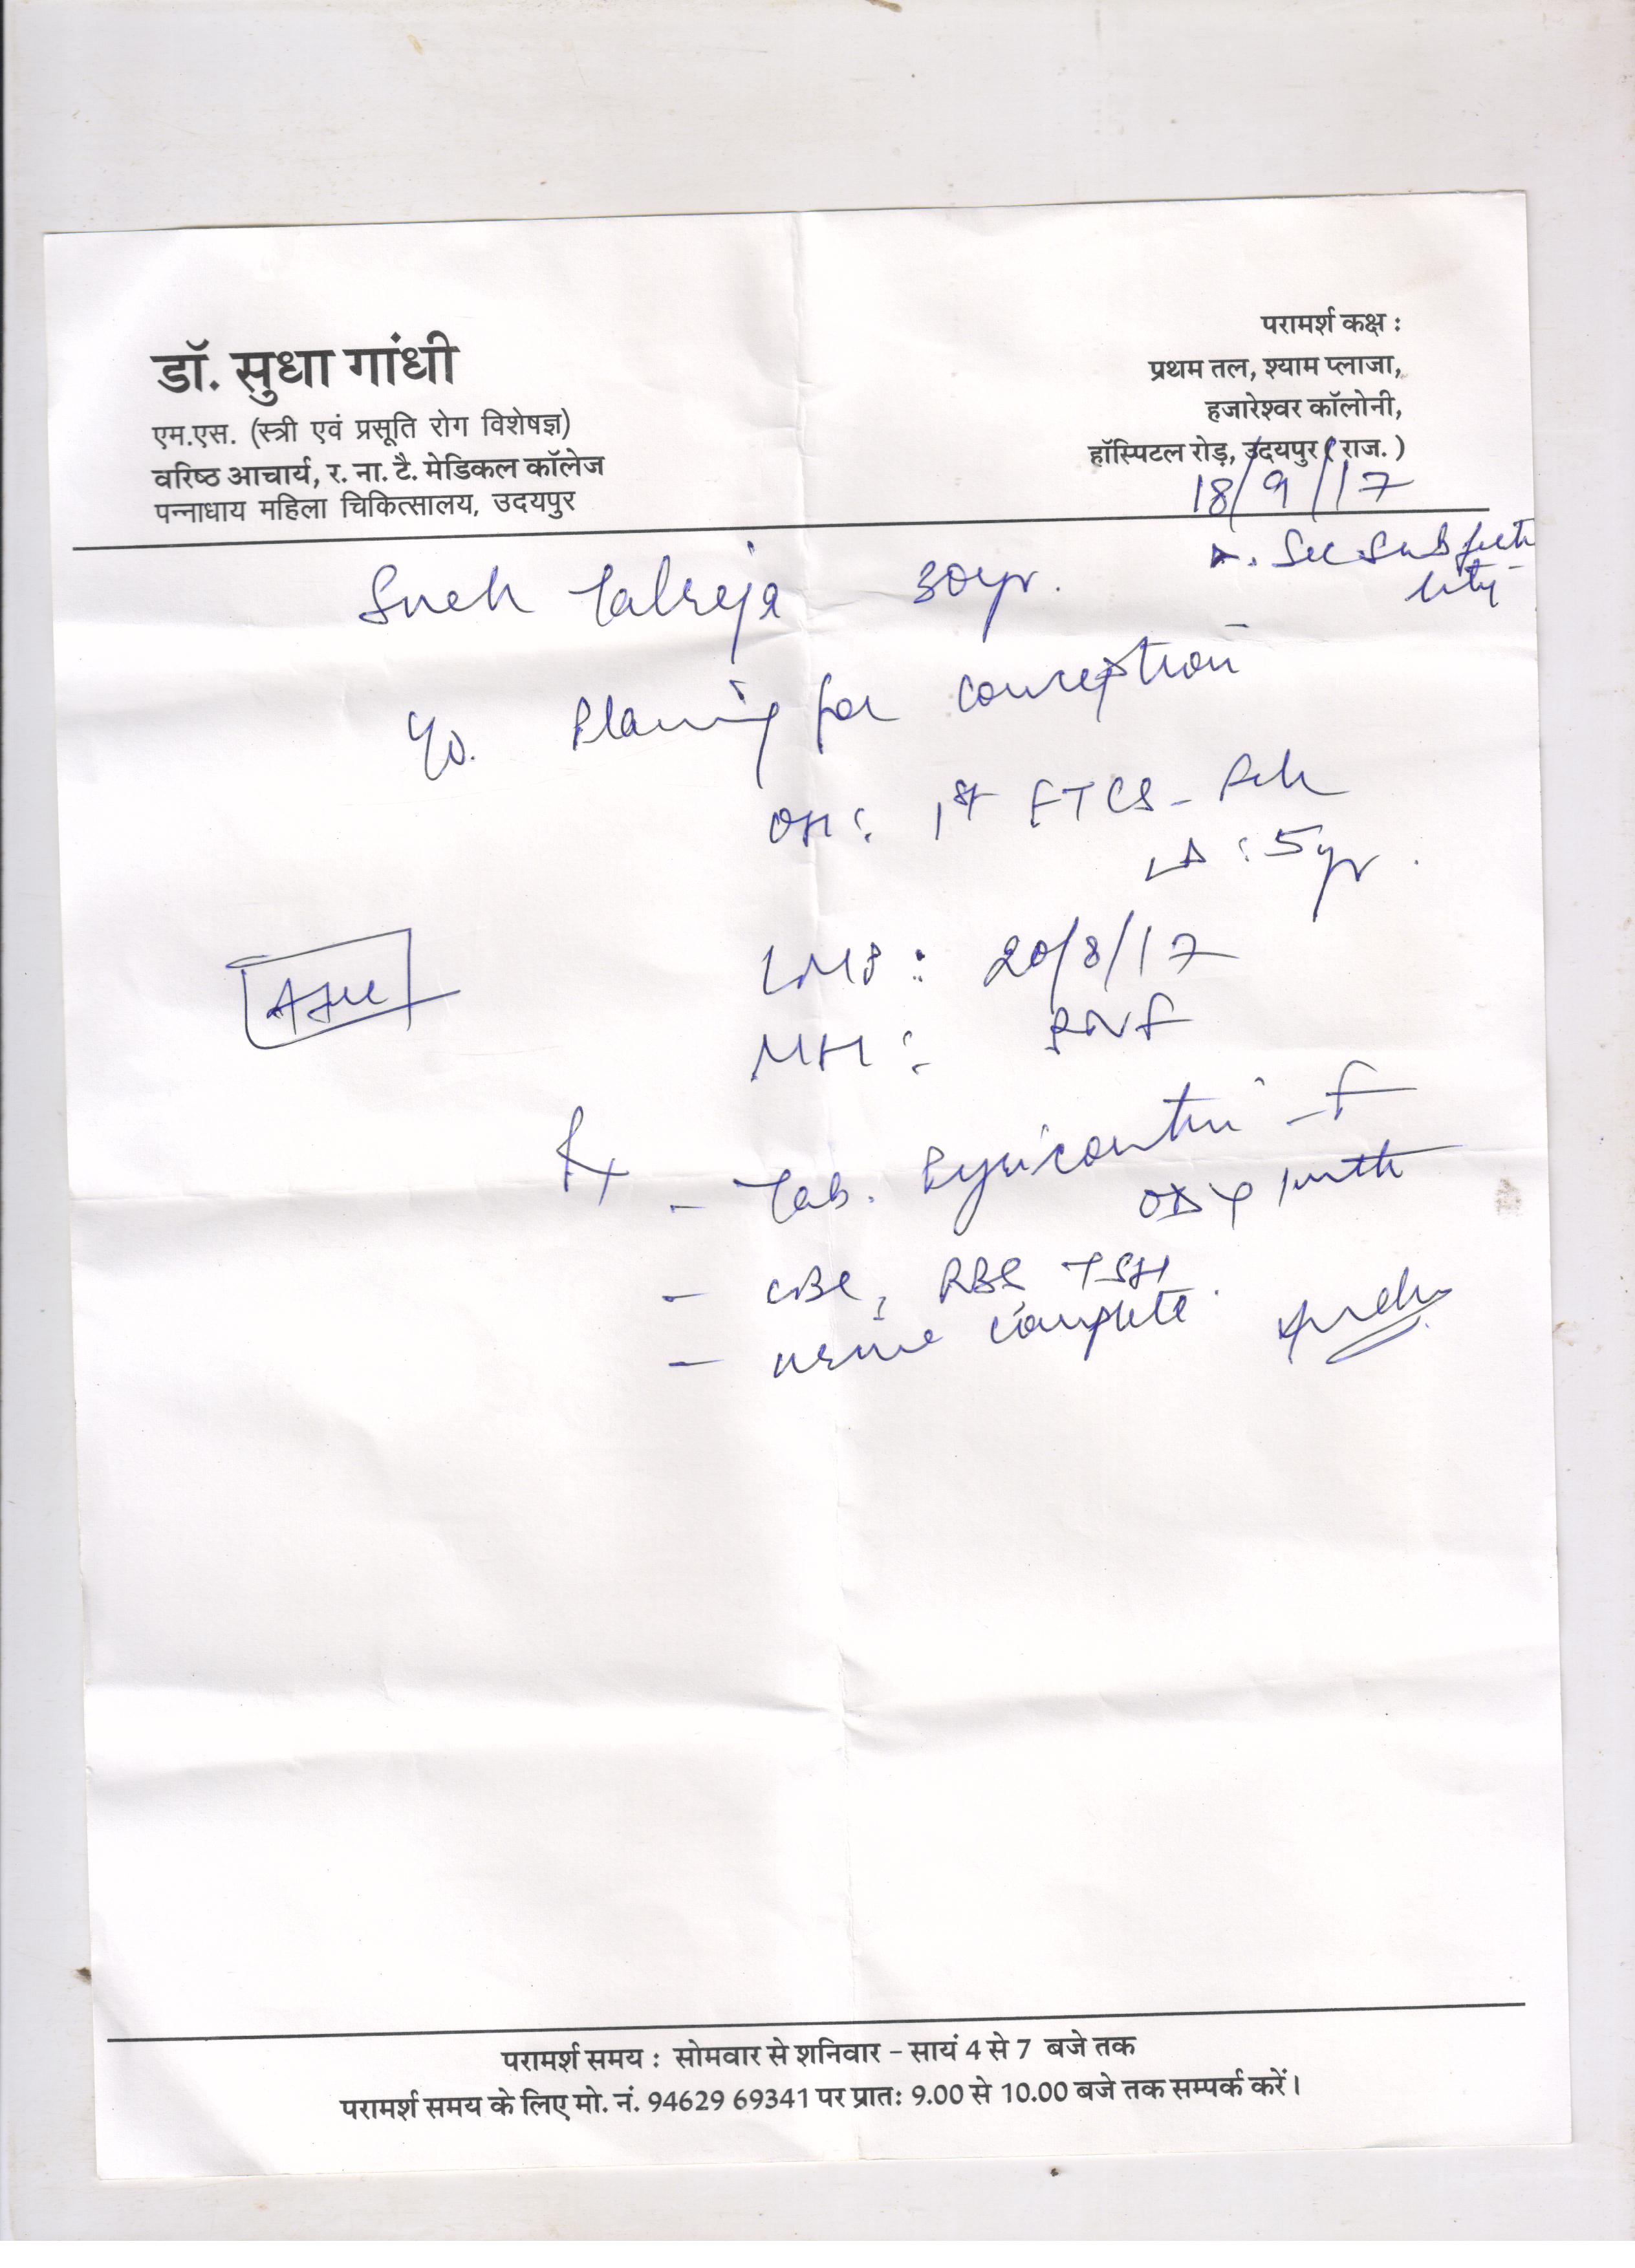 डॉ. सुधा गांधी
एम.एस. (स्त्री एवं प्रसूति रोग विशेषज्ञ)
वरिष्ठ आचार्य, र. ना. टै. मेडिकल कॉलेज
पन्नाधाय महिला चिकित्सालय, उदयपुर
परामर्श कक्ष :
प्रथम तल, श्याम प्लाजा,
हजारेश्वर कॉलोनी,
हॉस्पिटल रोड़, उदयपुर ( राज. )
18/9/17
Sec. Subferti
lity
Talreja 30yr.
Planning for conception
OH: 1st FTCS -
LD : 5yr.
LMP : 20/8/17
MH :
Rx
- Tab. - F
OD x 1 mth
- CBC, RBS, TSH
- urine complete
परामर्श समय : सोमवार से शनिवार - सायं 4 से 7 बजे तक
परामर्श समय के लिए मो. नं. 94629 69341 पर प्रातः 9.00 से 10.00 बजे तक सम्पर्क करें।